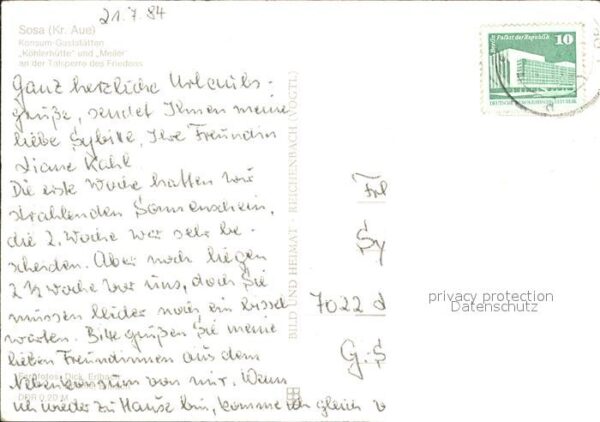 21.7.84
Sosa (Kr. Aue)
Konsum-Gaststätten
„Köhlerhütte" und „Meiler"
an der Talsperre des Friedens
Ganz herzliche Urlaubs-
grüße, sendet Ihnen meine
liebe Sybille, Ihre Freundin
Liane Kahl.
Die erste Woche hatten wir
strahlenden Sonnenschein,
die 2. Woche war sehr be-
scheiden. Aber noch liegen
2 ½ Woche vor uns, doch Sie
müssen leider noch ein bissel
warten. Bitte grüßen Sie meine
lieben Freundinnen aus dem
Nebenkonsum von mir. Wenn
ich wieder zu Hause bin, komme ich gleich v
Farbfotos: Dick, Erlbach
DDR 0,20 M
BILD UND HEIMAT · REICHENBACH (VOGTL)
Berlin, Palast der Republik
10
DEUTSCHE DEMOKRATISCHE REPUBLIK
Frl
Sy
7022
G.-S
privacy protection
Datenschutz